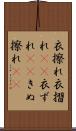 衣擦れ衣摺
れ衣ず
れきぬ
擦れ